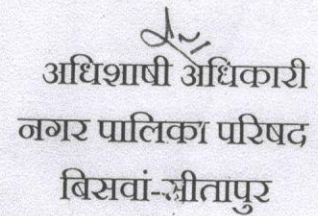 अधिशाषी अधिकारी
नगर पालिका परिषद
बिसवां-सीतापुर